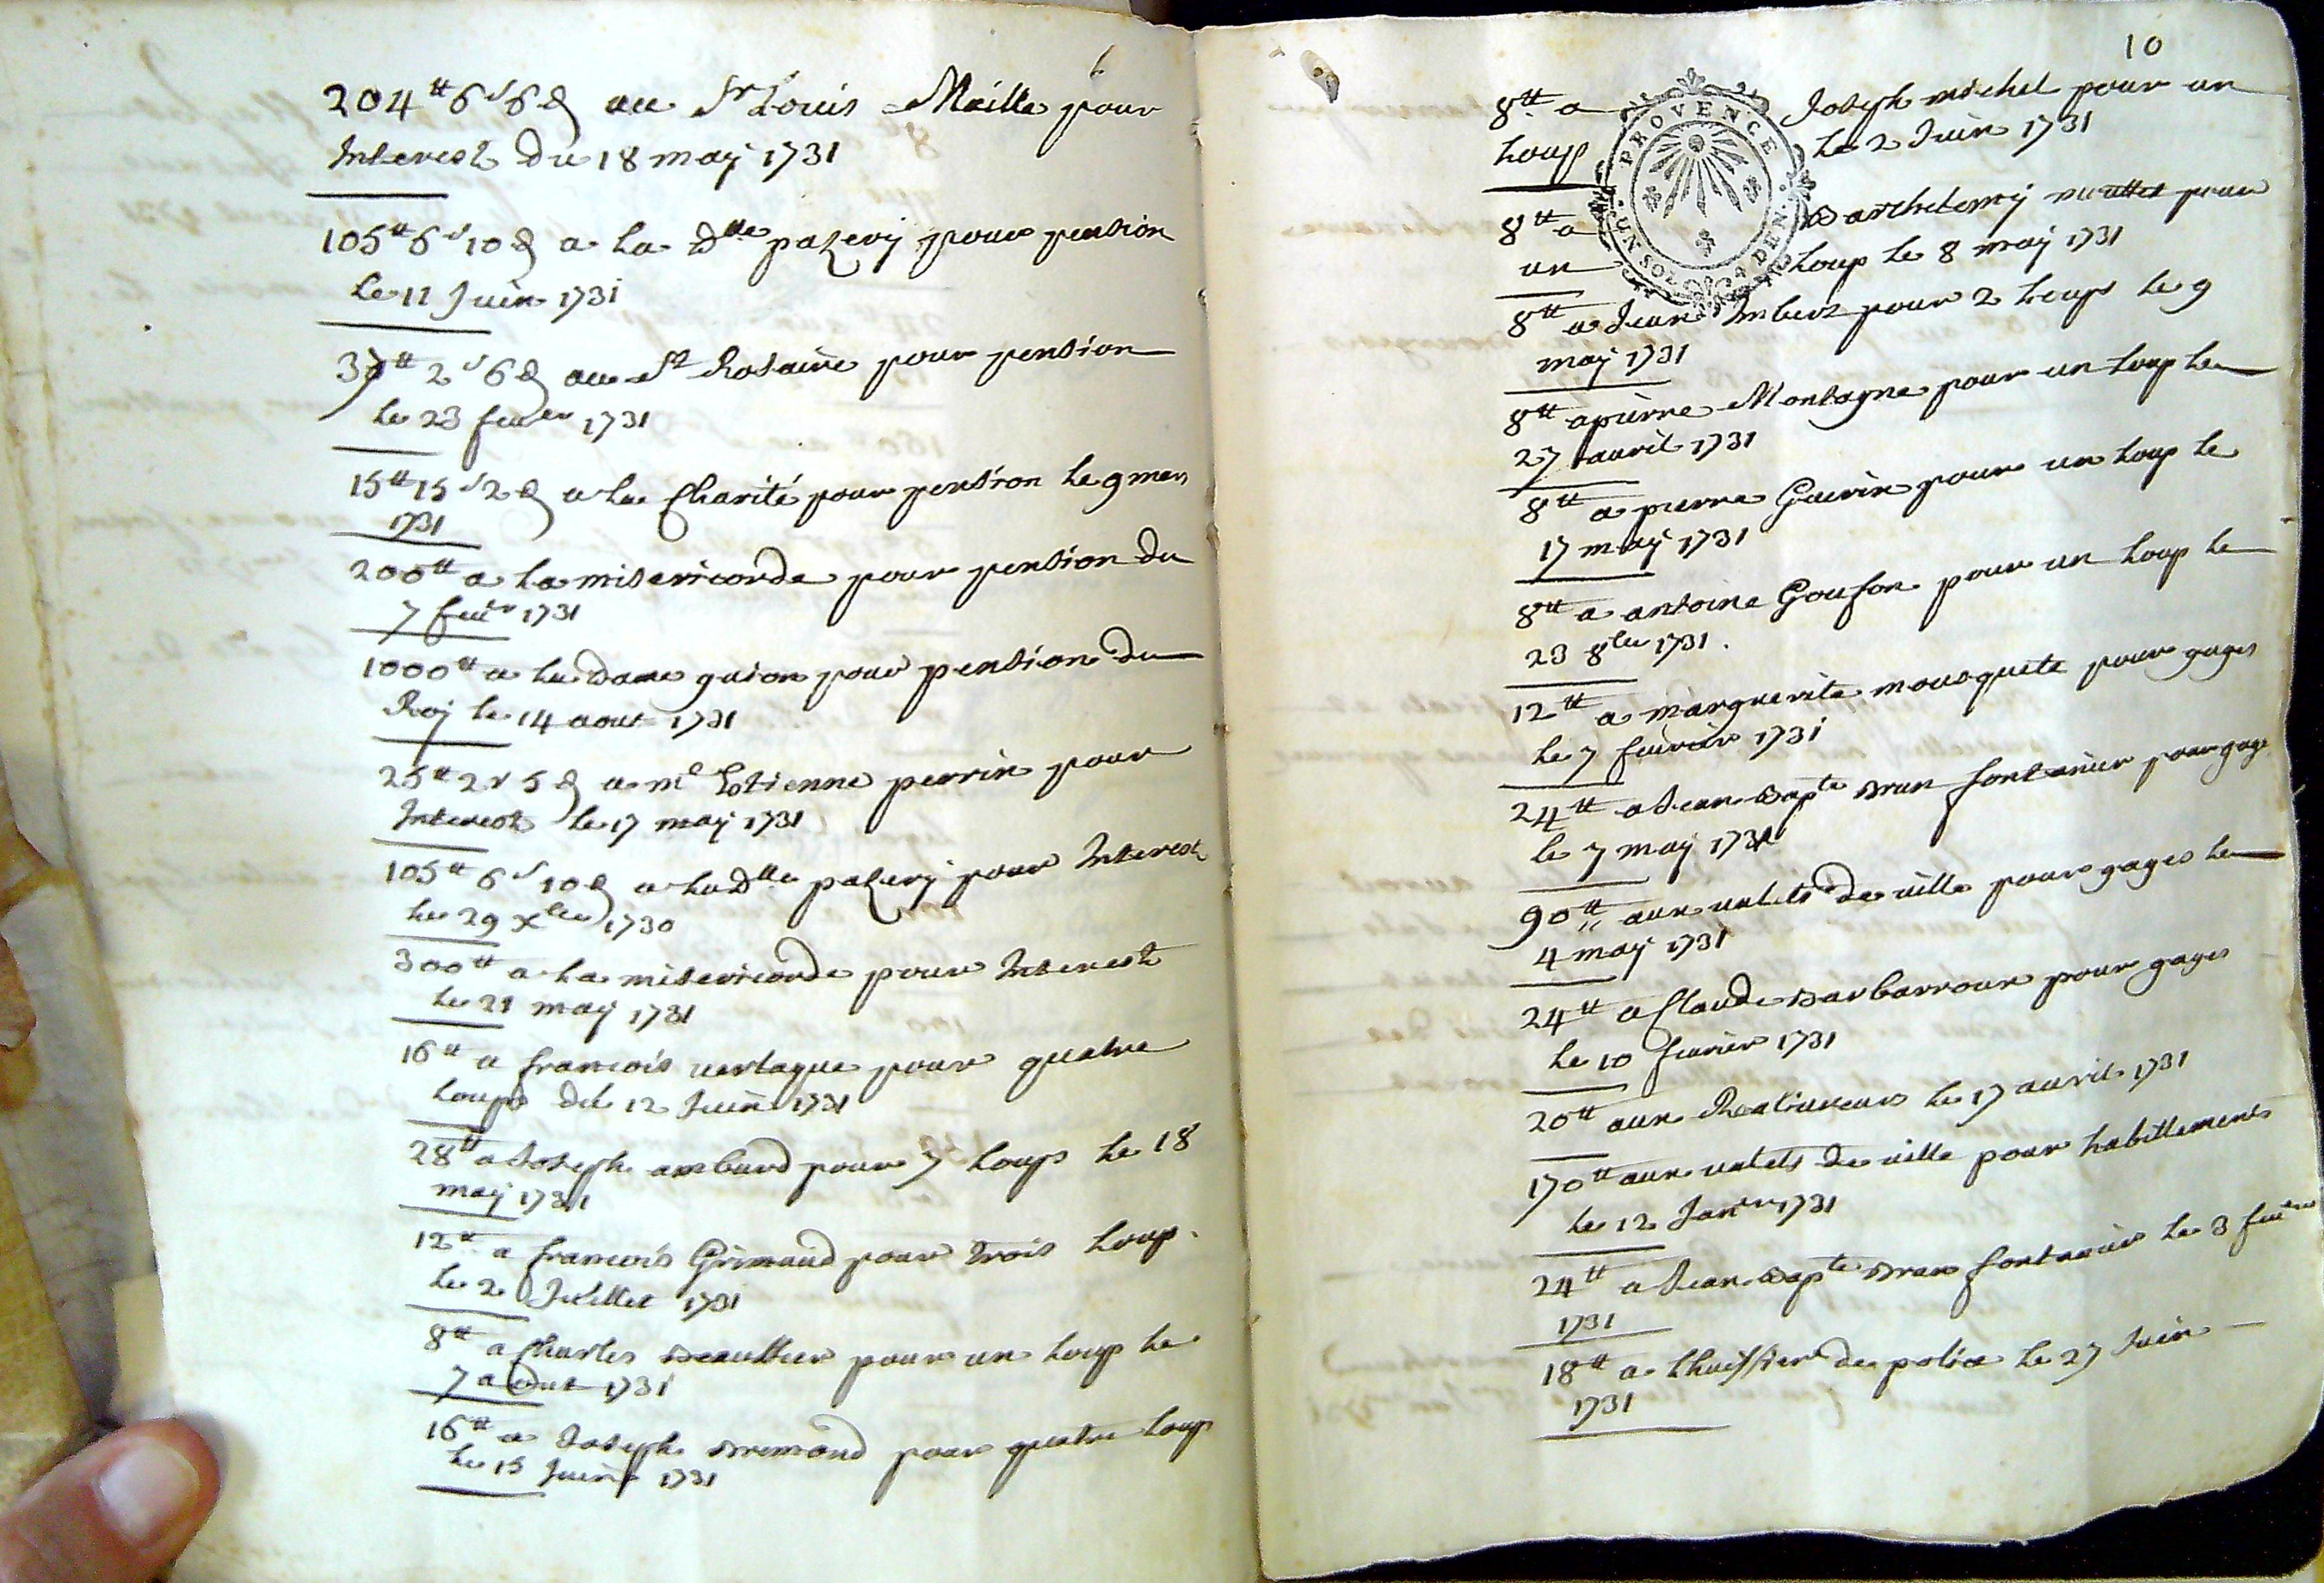 204tt 6s 6d au Sr Louis Maille pour
Interest du 18 may 1731
105tt 6s 10d a la Dlle pazery pour pension
le 11 Juin 1731
2s 6d au St Rosaire pour pension
le 23 feuer 1731
15tt 15s 2d a la Charité pour pension le 9 mars
1731
200tt a la misericorde pour pension du
7 feur 1731
1000tt a la dame guion pour pension du
Roy le 14 aout 1731
25tt 2s 5d a me Estienne perrin pour
Interest le 17 may 1731
105tt 6s 10d a la Dlle pazery pour Interest
le 29 xbre 1730
300tt a la misericorde pour Interest
le 21 may 1731
16tt a francois vertague pour quatre
loups du 12 Juin 1731
28tt a Joseph ambard pour 7 loups le 18
may 1731
12tt a francois Grimaud pour trois loup.
le 2 Juillet 1731
8tt a Charles pour un loup le
7 aout 1731
16tt a Joseph Bremond pour quatre loup
le 15 Juin 1731
10
8tt a Joseph michel pour un
loup le 2 Juin 1731
PROVENCE
UN SOL 4 DEN.
8tt a Barthelemy pour
un loup le 8 may 1731
8tt a Jean Imbert pour 2 loups le 9
may 1731
8tt a pierre Montagne pour un loup le
27 auril 1731
8tt a pierre Guerin pour un loup le
17 may 1731
8tt a antoine Goufon pour un loup le
23 8bre 1731.
12tt a marguerite mouoquete pour gages
le 7 feurier 1731
24tt a Jean Bapte Brun fontanier pour gage
le 7 may 1731
90tt aux valets de uille pour gages le
4 may 1731
24tt a Claude Barbarroux pour gages
le 10 feurier 1731
20tt aux le 17 auril 1731
170tt aux valets de uille pour habillements
le 12 Janer 1731
24tt a Jean Bapte Brun fontanier le 3 feurier
1731
18tt a lhuissier de police le 27 Juin
1731